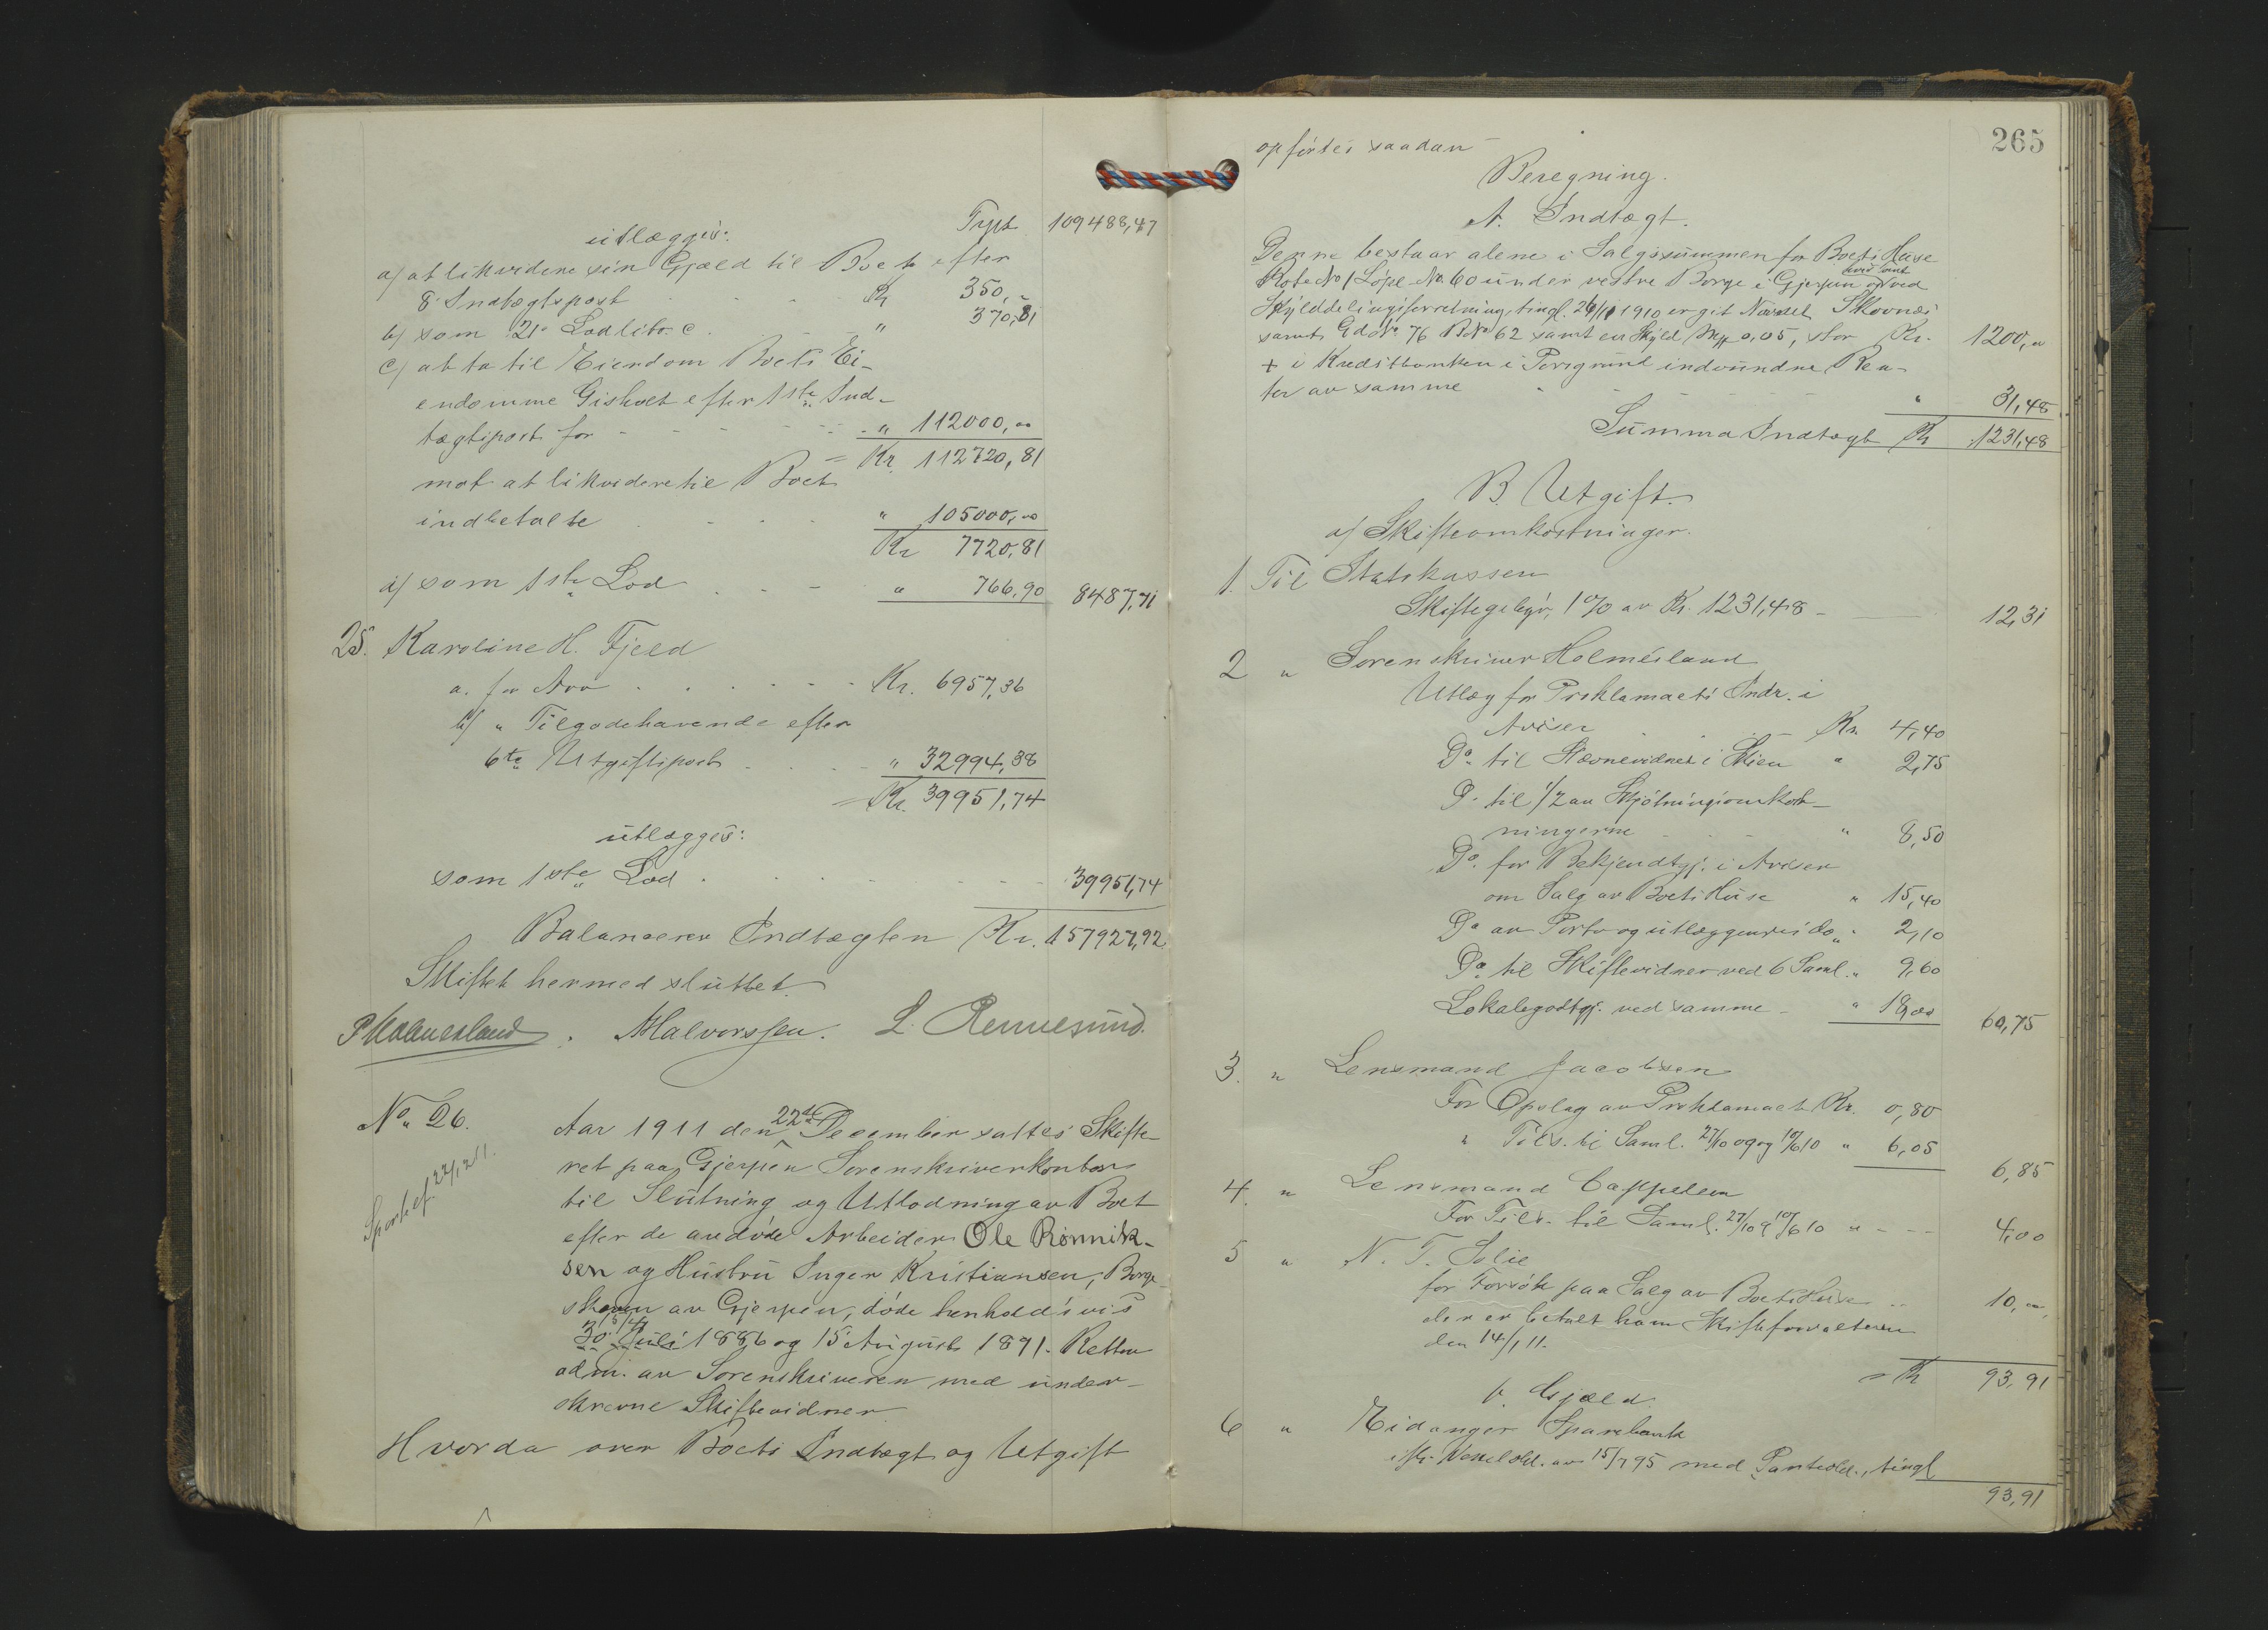 Trpt 109488,47
utlægges:
a) at likvidere sin Gjæld til Boet efter
8. Indtægtspost Kr 350,"
b) som 21. Lod litr. c. " 370,81
c) at ta til Eiendom Boets Ei-
endomme Gisholt efter 1ste Ind-
tægtspost for " 112000,00
= Kr. 112720,81
mot at likvidere til Boet
indbetalte " 105000,00
Kr 7720,81
d) som 1ste Lod " 766,90 8487,71
25. Karoline H. Fjeld
a. for Arv Kr. 6957,36
b) " Tilgodehavende efter
6te Utgiftspost " 32994,38
= Kr. 39951,74
utlægges:
som 1ste Lod 39951,74
Balancerer Indtægten Kr. 157927,92
Skiftet hermed sluttet.
P Holmesland. Halvorssen. L. Rennesund.
No. 26. Aar 1911 den 22de December sattes Skifte-
ret paa Gjerpen Sorenskriverkontor
22/12 11.
til Slutning og Utlodning av Boet
efter de avdøde Arbeider Ole Rønnik-
sen og Hustru Inger Kristiansen, Borge-
skogen av Gjerpen, døde henholdsvis
30. Juli 1886 og 15 August 1891. Retten
adm. av Sorenskriveren med under-
skrevne Skiftevidner
Hvorda over Boets Indtægt og Utgift
265
opførtes saadan
Beregning.
A. Indtægt.
Denne bestaar alene i Salgssummen for Boets Huse
Rote No 1 Løpe No. 60 under vestre Borge i Gjerpen og ved
Skylddelingsforretning, tingl. 26/11 1910 er git Navnet Skovnæs
samt Gdo No. 76 BNo 62 samt en Skyld Mrk 0,05, stor Kr. 1200,"
+ i Kreditbanken i Porsgrund indvundne Ren-
ter av samme " 31,48
Summa Indtægt Kr 1231,48
B. Utgift.
a) Skifteomkostninger.
1. Til Statskassen
Skiftegebyr, 1% av Kr. 1231,48 – 12,31
2 " Sorenskriver Holmesland
Utlæg for Proklamaets Indr. i
Aviser Kr. 4,40
Do. til Stævnevidner i Skien " 2,75
Do. til 1/2 av Skjøtningsomkost-
ningerne " 8,50
Do. for Bekjendtgj. i Aviser
om Salg av Boets Huse " 15,40
Do av Porto og utlæggenes do " 2,10
Do. til Skiftevidner ved 6 Saml. " 9,60
Lokalegodtgj. ved samme " 18,00 60,75
3. " Lensmand Jacobsen
For Opslag av Proklamaet Kr. 0,80
" Tils. til Saml. 27/10 09 og 10/6 10 " 6,05 6,85
4. " Lensmand Cappelen
For Tils. til Saml. 27/10 9 10/6 10 " 4,00
5 " N. T. Solie
for Forsøk paa Salg av Boets Huse " 10,00
der er betalt ham Skifteforvalteren
den 14/1 11.
= Kr 93,91
b. Gjæld
6 " Eidanger Sparebank
ifl. Vexelobl. av 15/7 95 med Panteobl., tingl
93,91